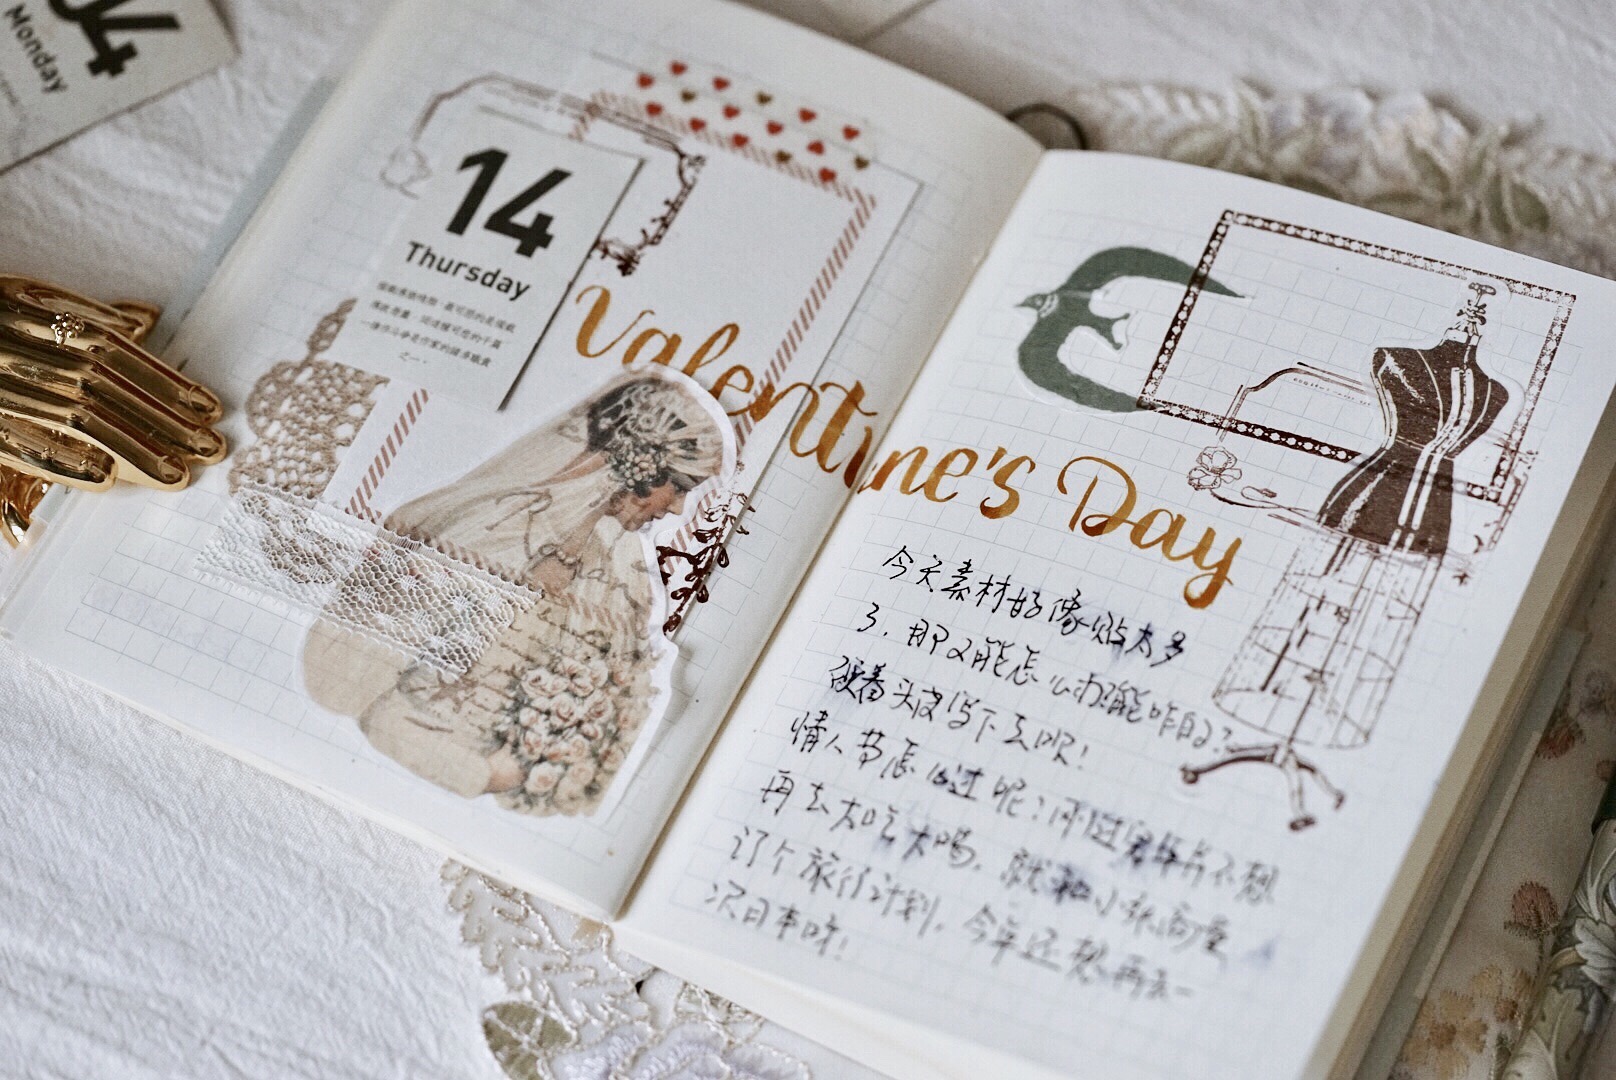 04
Monday
14
Thursday
Valentine's Day
今天素材好像贴太多
了，那又能怎么办能咋的?
硬着头皮写下去呗!
情人节怎么过呢?不过
不想
再去大吃大喝，就和小张商量
订个旅行计划，今年还想再去一
次日本呀!